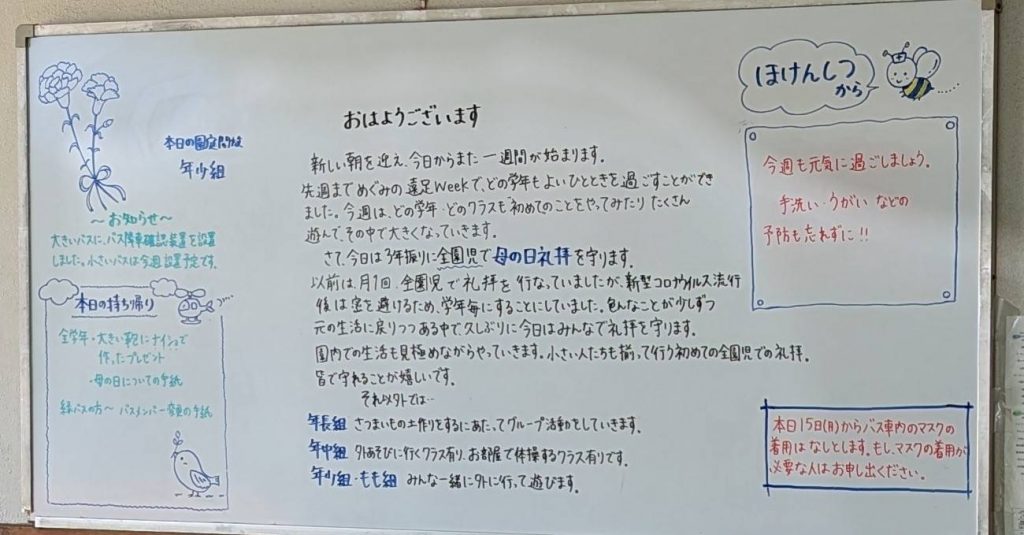 本日の園庭開放
年少組
〜お知らせ〜
大きいバスに、バス降車確認装置を設置
しました。小さいバスは今週設置予定です。
本日の持ち帰り
全学年・大きい靴にナイショで
作ったプレゼント
・母の日についての手紙
緑バスの方〜バスメンバー変更の手紙
おはようございます
新しい朝を迎え、今日からまた一週間が始まります。
先週まで めぐみの遠足Weekで、どの学年もよいひとときを過ごすことができ
ました。今週は、どの学年・どのクラスも初めてのことをやってみたり たくさん
遊んで、その中で大きくなっていきます。
さて、今日は3年振りに全園児で母の日礼拝を守ります。
以前は、月1回、全園児で礼拝を行なっていましたが、新型コロナウイルス流行
後は密を避けるため、学年毎にすることにしていました。色んなことが少しずつ
元の生活に戻りつつある中で、久しぶりに今日はみんなで礼拝を守ります。
園内での生活も見極めながらやっていきます。小さい人たちも揃って行う初めての全園児での礼拝。
皆で守れることが嬉しいです。
それ以外では…
年長組 さつまいもの土作りをするにあたってグループ活動をしていきます。
年中組 外あそびに行くクラス有り、お部屋で体操するクラス有りです。
年少組・もも組 みんな一緒に外に行って遊びます。
ほけんしつ
から
今週も元気に過ごしましょう。
手洗い・うがい などの
予防も忘れずに!!
本日15日(月)からバス車内のマスクの
着用は なしとします。もし、マスクの着用が
必要な人は お申し出ください。